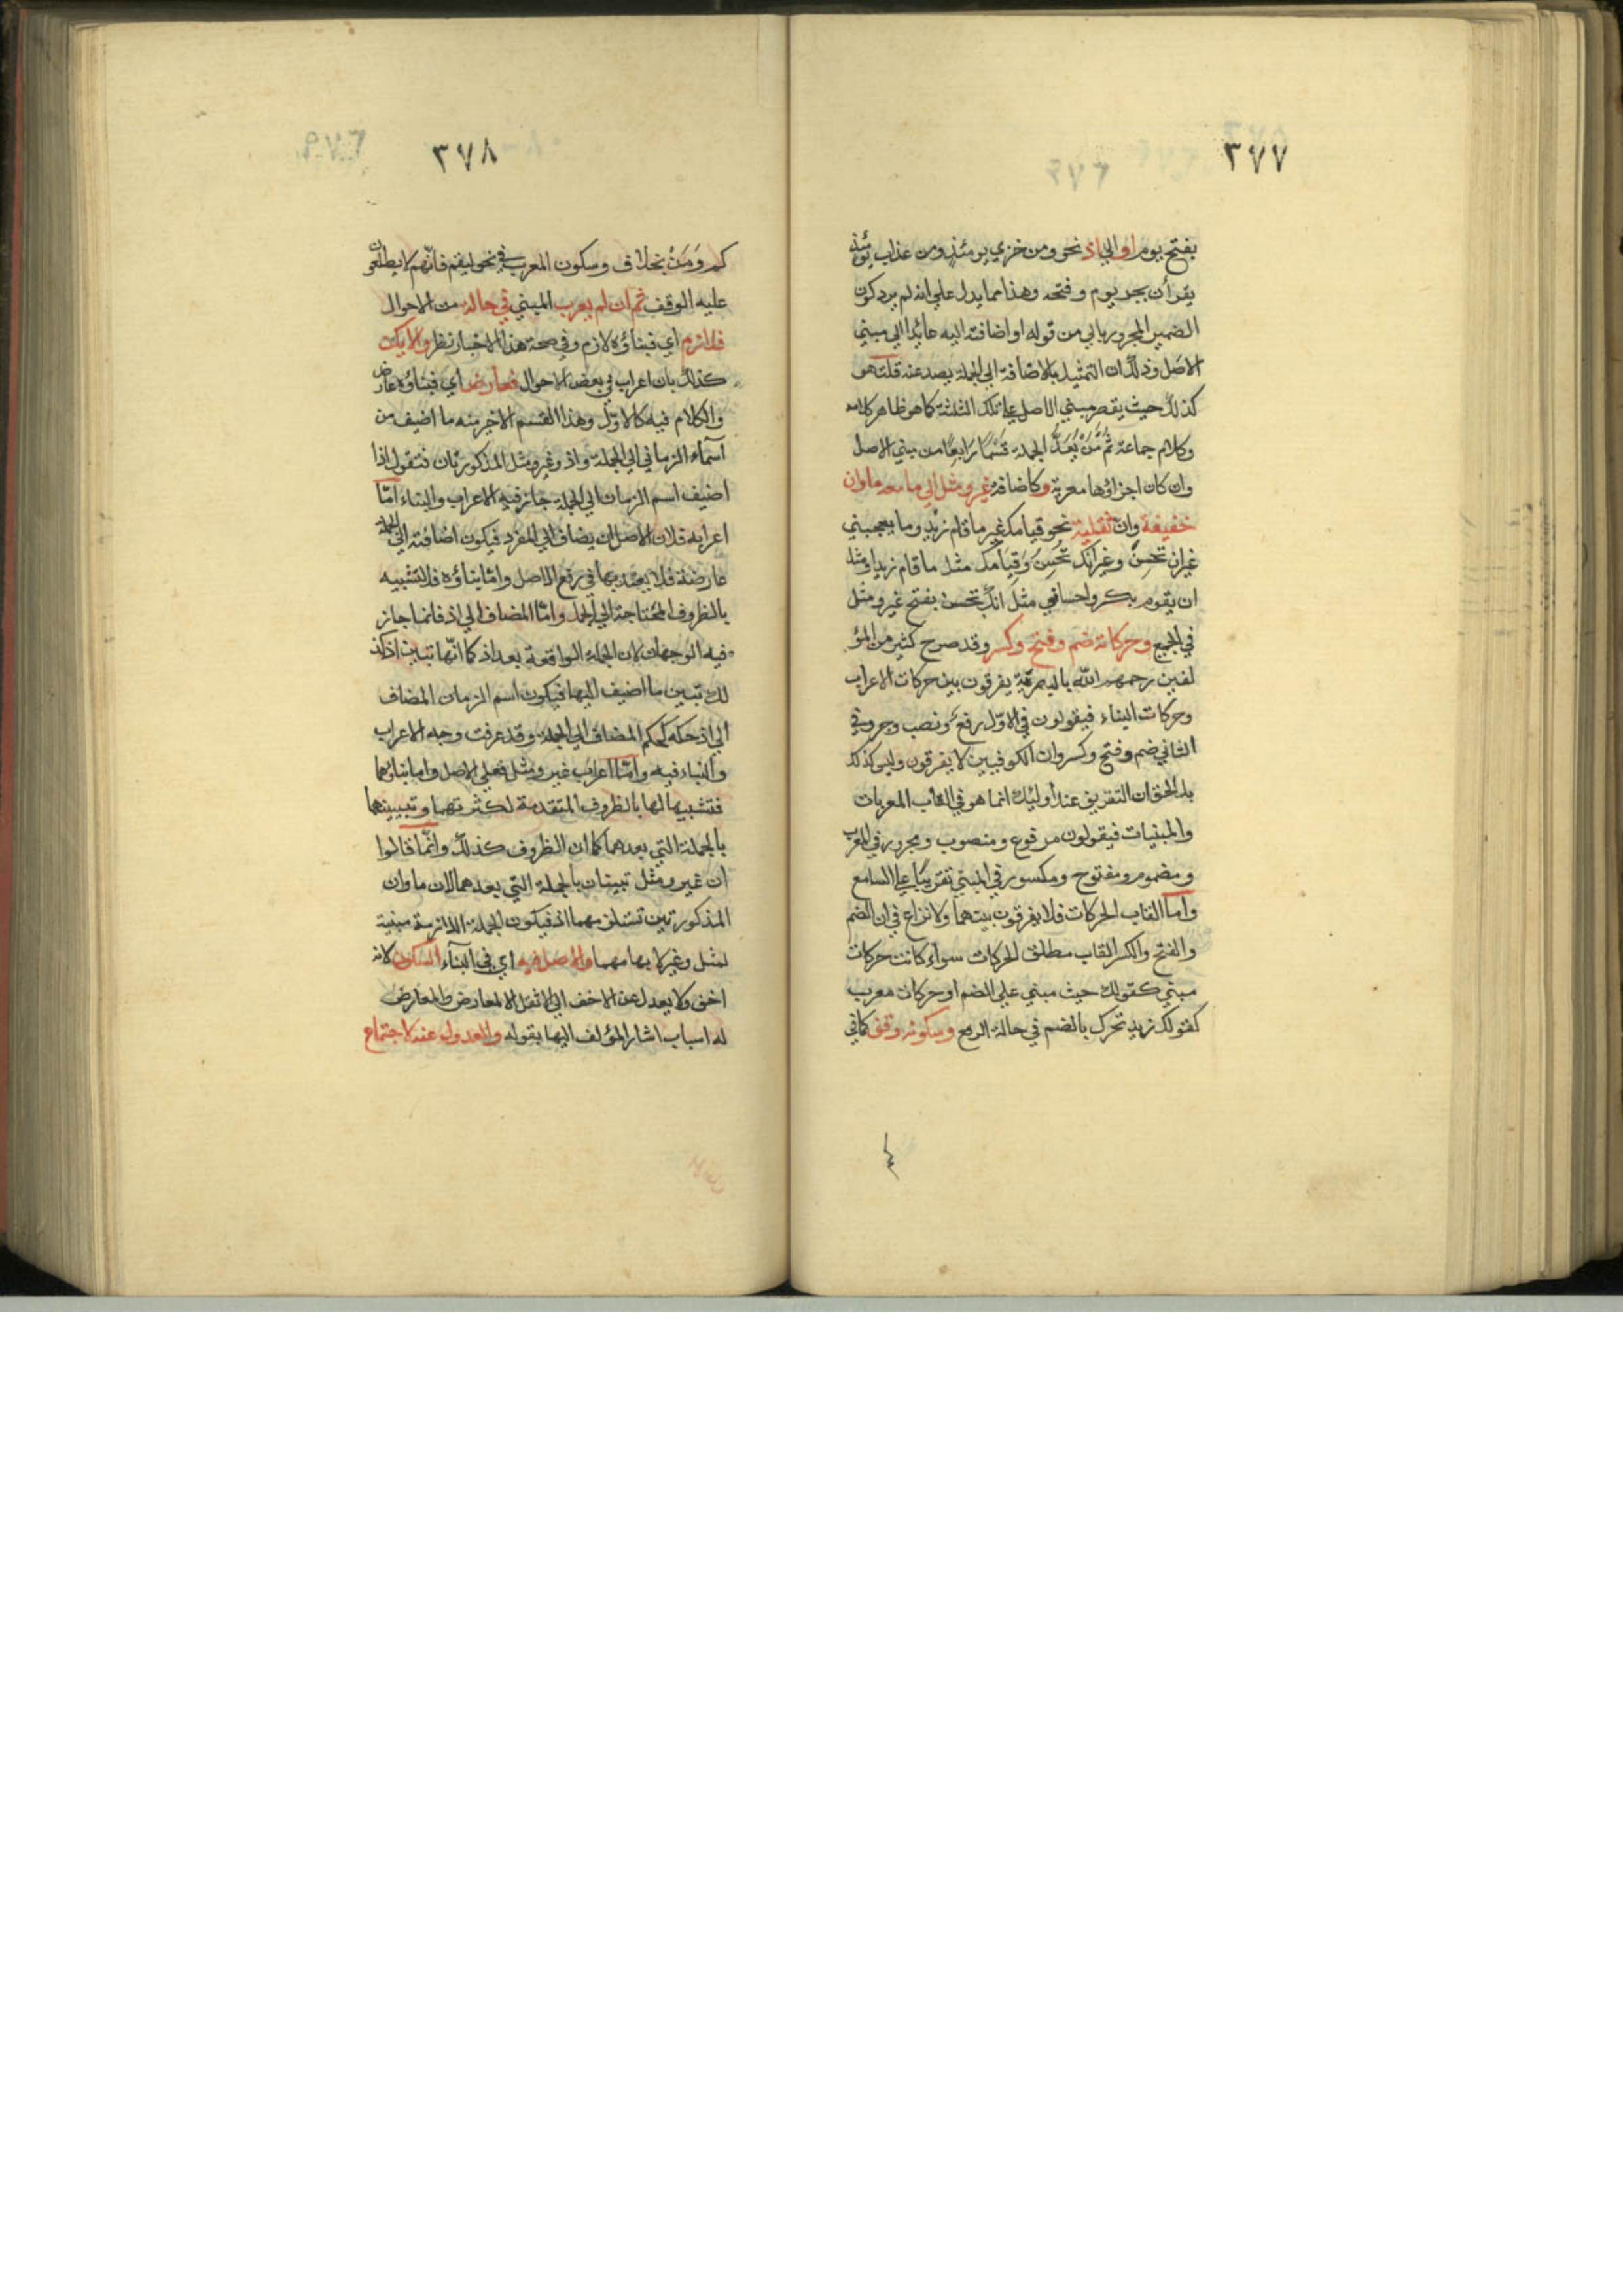 ٣٧٧
بفتح يوم او الي اذ نحو ومن خزي يومئذ ومن عذاب يومئذ
يقرأن بجر يوم وفتحه وهذا مما يدل علي انه لم يرد كون
الضمير المجرور بالي من قوله او اضافته اليه عائدا الي مبني
الاصل وذلك ان التمثيل بالاضافة الي الجملة يصد عنه قلت هو
كذلك حيث يقصر مبني الاصل علي تلك الثلثة كما هو ظاهر كلامه
وكلام جماعة ثم مَنْ يَعُدُّ الجملة قسمًا رَابِعًا من مبني الاصل
وان كان اجزاؤها معربة وكاضافة غير ومثل الي ما معه ما وان
خفيفة وان ثقيلة نحو قيامك غير ما قام زيد وما يعجبني
غير ان تحسن وغير انك تحسن وقيامك مثل ما قام زيد او مثل
ان يقوم بكر واحسافي مثل انك تحسن بفتح غير ومثل
في الجميع وحركاته ضم وفتح وكسر وقد صرح كثير من المؤ
لفين رحمهم الله بان البصرية يفرقون بين حركات الاعراب
وحركات البناء فيقولون في الاول رفع ونصب وجر وفي
الثاني ضم وفتح وكسر وان الكوفيين لا يفرقون وليس كذلك
بل الحق ان التفريق عند اوليك انما هو في القاب المعربات
والمبنيات فيقولون مرفوع ومنصوب ومجرور في المعرب
ومضموم ومفتوح ومكسور في المبني تقريبًا علي السامع
واما القاب الحركات فلا يفرقون بينهما ولا نزاع في ان الضم
والفتح والكسر القاب مطلق الحركات سواء كانت حركات
مبني كقولك حيث مبني علي الضم او حركات معرب
كقولك زيد تحرك بالضم في حالة الرفع وسكونه وقف كما في
٣٧٨
كم وَمَنْ بخلاف وسكون المعرب في نحو ليقم فانهم لا يطلقون
عليه الوقف ثم ان لم يعرب المبني في حالة من الاحوال
فلازم اي فبناؤه لازم وفي صحة هذا الاخبار نظر والا يكن
كذلك بان اعرب في بعض الاحوال فعارض اي فبناؤه عارض
والكلام فيه كالاول وهذا القسم الاخر منه ما اضيف من
آسماء الزماني الي الجملة واذ وغير ومثل المذكورتان فتقول اذا
اضيف اسم الزمان الي الجملة جاز فيه الاعراب والبناء امّا
اعرابه فلان الاصل ان يضاف الي المفرد فيكون اضافته الي الجملة
عارضة فلا يعتد بها في رفع الاصل وامّا بناؤه فلتشبيه
بالظروف المحتاجة الي الجمل وامّا المضاف الي اذ فانما جاز
فيه الوجهان لان الجملة الواقعة بعد اذ كما انّها تبين اذ كذ
لك تبين ما اضيف اليها فيكون اسم الزمان المضاف
الي اذ حكمه كحكم المضاف الي الجملة وقد عرفت وجه الاعراب
والبناء فيه وامّا اعراب غير ومثل فعلي الاصل واما بناؤهما
فتشبيها لها بالظروف المتقدمة لكثرتهما وتبيينهما
بالجملة التي بعدهما كما ان الظروف كذلك وانّما قالوا
ان غير ومثل تبينان بالجملة التي بعدهما لان ما وان
المذكورتين تستلزمهما اذ فيكون الجملة اللازمة مبنية
لمثل وغير لابهامهما والاصل فيه اي في البنآء السكون لانه
اخف ولا يعدل عن الاخف الي الاثقل الا لعارض والعارض
له اسباب اشار المؤلف اليها بقوله والعدول عنه لاجتماع